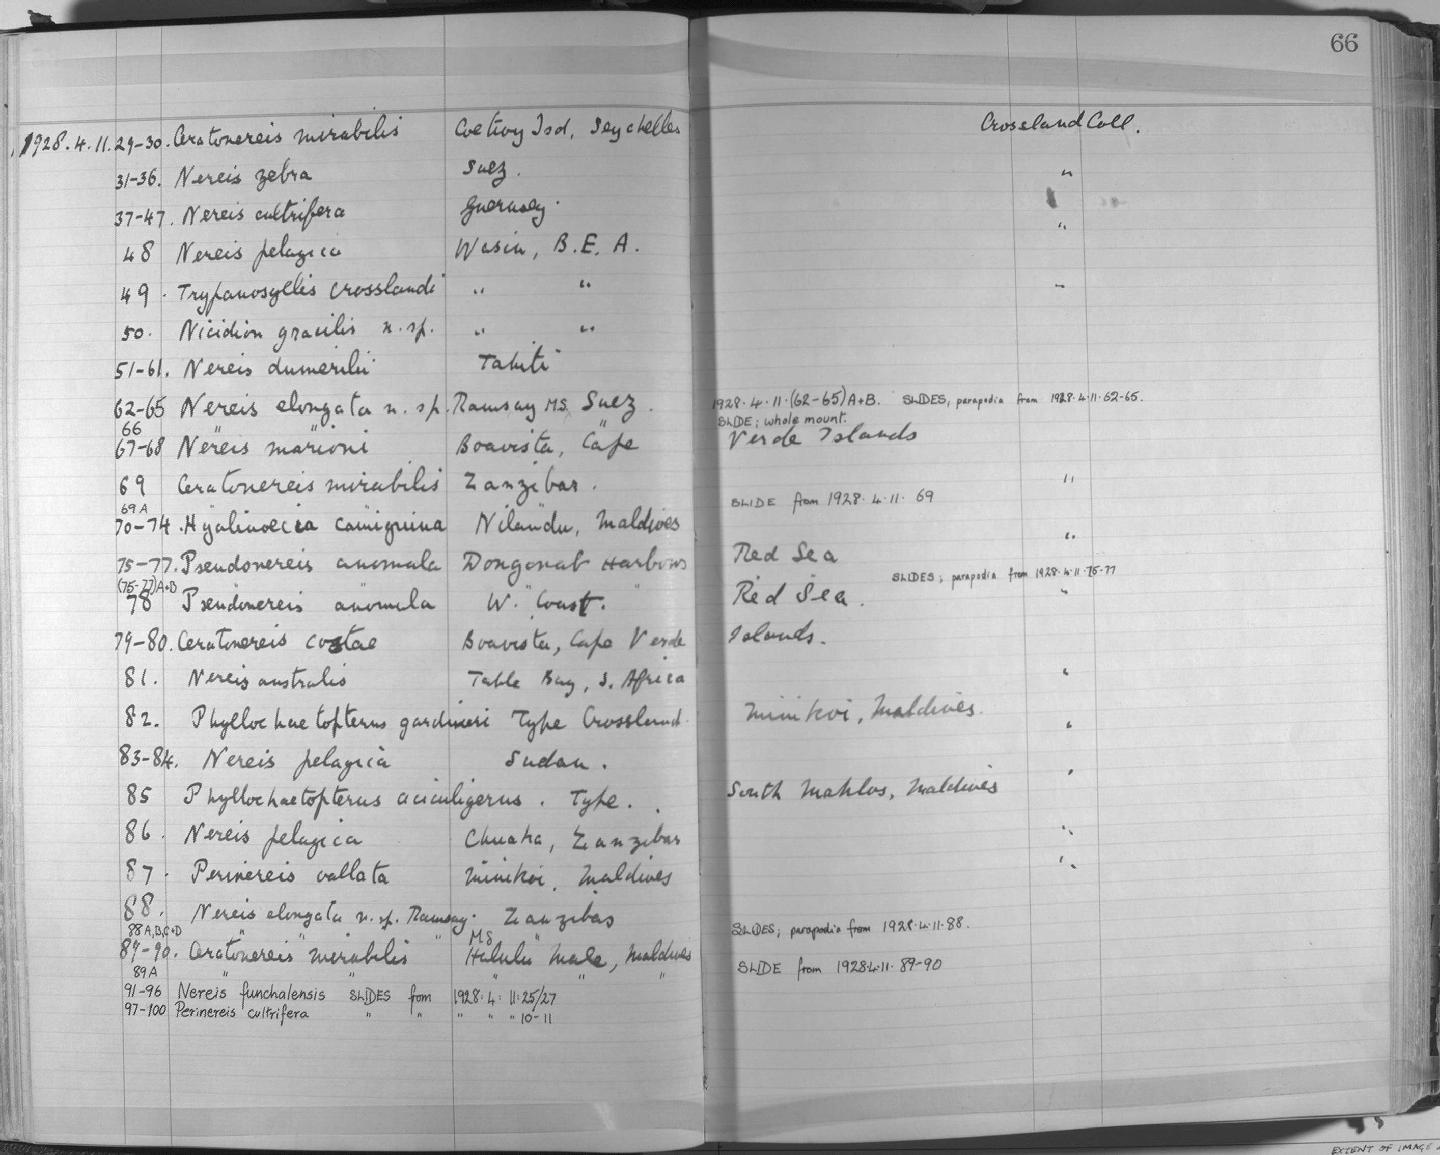 66
1928.4.11.29-30. Ceratonereis mirabilis Coetivy Isd, Seychelles Crossland Coll.
31-36. Nereis zebra Suez. "
37-47. Nereis cultrifera Guernsey. "
48 Nereis pelagica Wasin, B.E.A.
49. Trypanosyllis crosslandi " " "
50. Nicidion gracilis n.sp. " "
51-61. Nereis dumerilii Tahiti
62-65 Nereis elongata n.sp. Ramsay MS Suez. 1928.4.11.(62-65)A+B. SLIDES, parapodia from 1928.4.11.62-65.
66 " " " SLIDE; whole mount.
67-68 Nereis marioni Boavista, Cape Verde Islands
69 Ceratonereis mirabilis Zanzibar. "
69A SLIDE from 1928.4.11.69
70-74. Hyalinoecia camiguina Nilandu, Maldives "
75-77. Pseudonereis anomala Dongonab Harbour Red Sea
(75-77)A+B " " " " SLIDES; parapodia from 1928.4.11.75-77
78 Pseudonereis anomala W. Coast. Red Sea. "
79-80. Ceratonereis costae Boavista, Cape Verde Islands.
81. Nereis australis Table Bay, S. Africa "
82. Phyllochaetopterus gardineri Type Crossland. Minikoi, Maldives. "
83-84. Nereis pelagica Sudan. "
85 Phyllochaetopterus aciculigerus. Type. South Mahlos, Maldives
86. Nereis pelagica Chuaka, Zanzibar "
87. Perinereis vallata Minikoi, Maldives "
88. Nereis elongata n.sp. Ramsay. MS Zanzibar
88 A,B,C+D " " " " SLIDES; parapodia from 1928.4.11.88.
89-90. Ceratonereis mirabilis Hululu Male, Maldives
89A " " " " " SLIDE from 1928.4.11.89-90
91-96 Nereis funchalensis SLIDES from 1928.4.11.25/27
97-100 Perinereis cultrifera " " " " " 10-11
EXTENT OF IMAGE